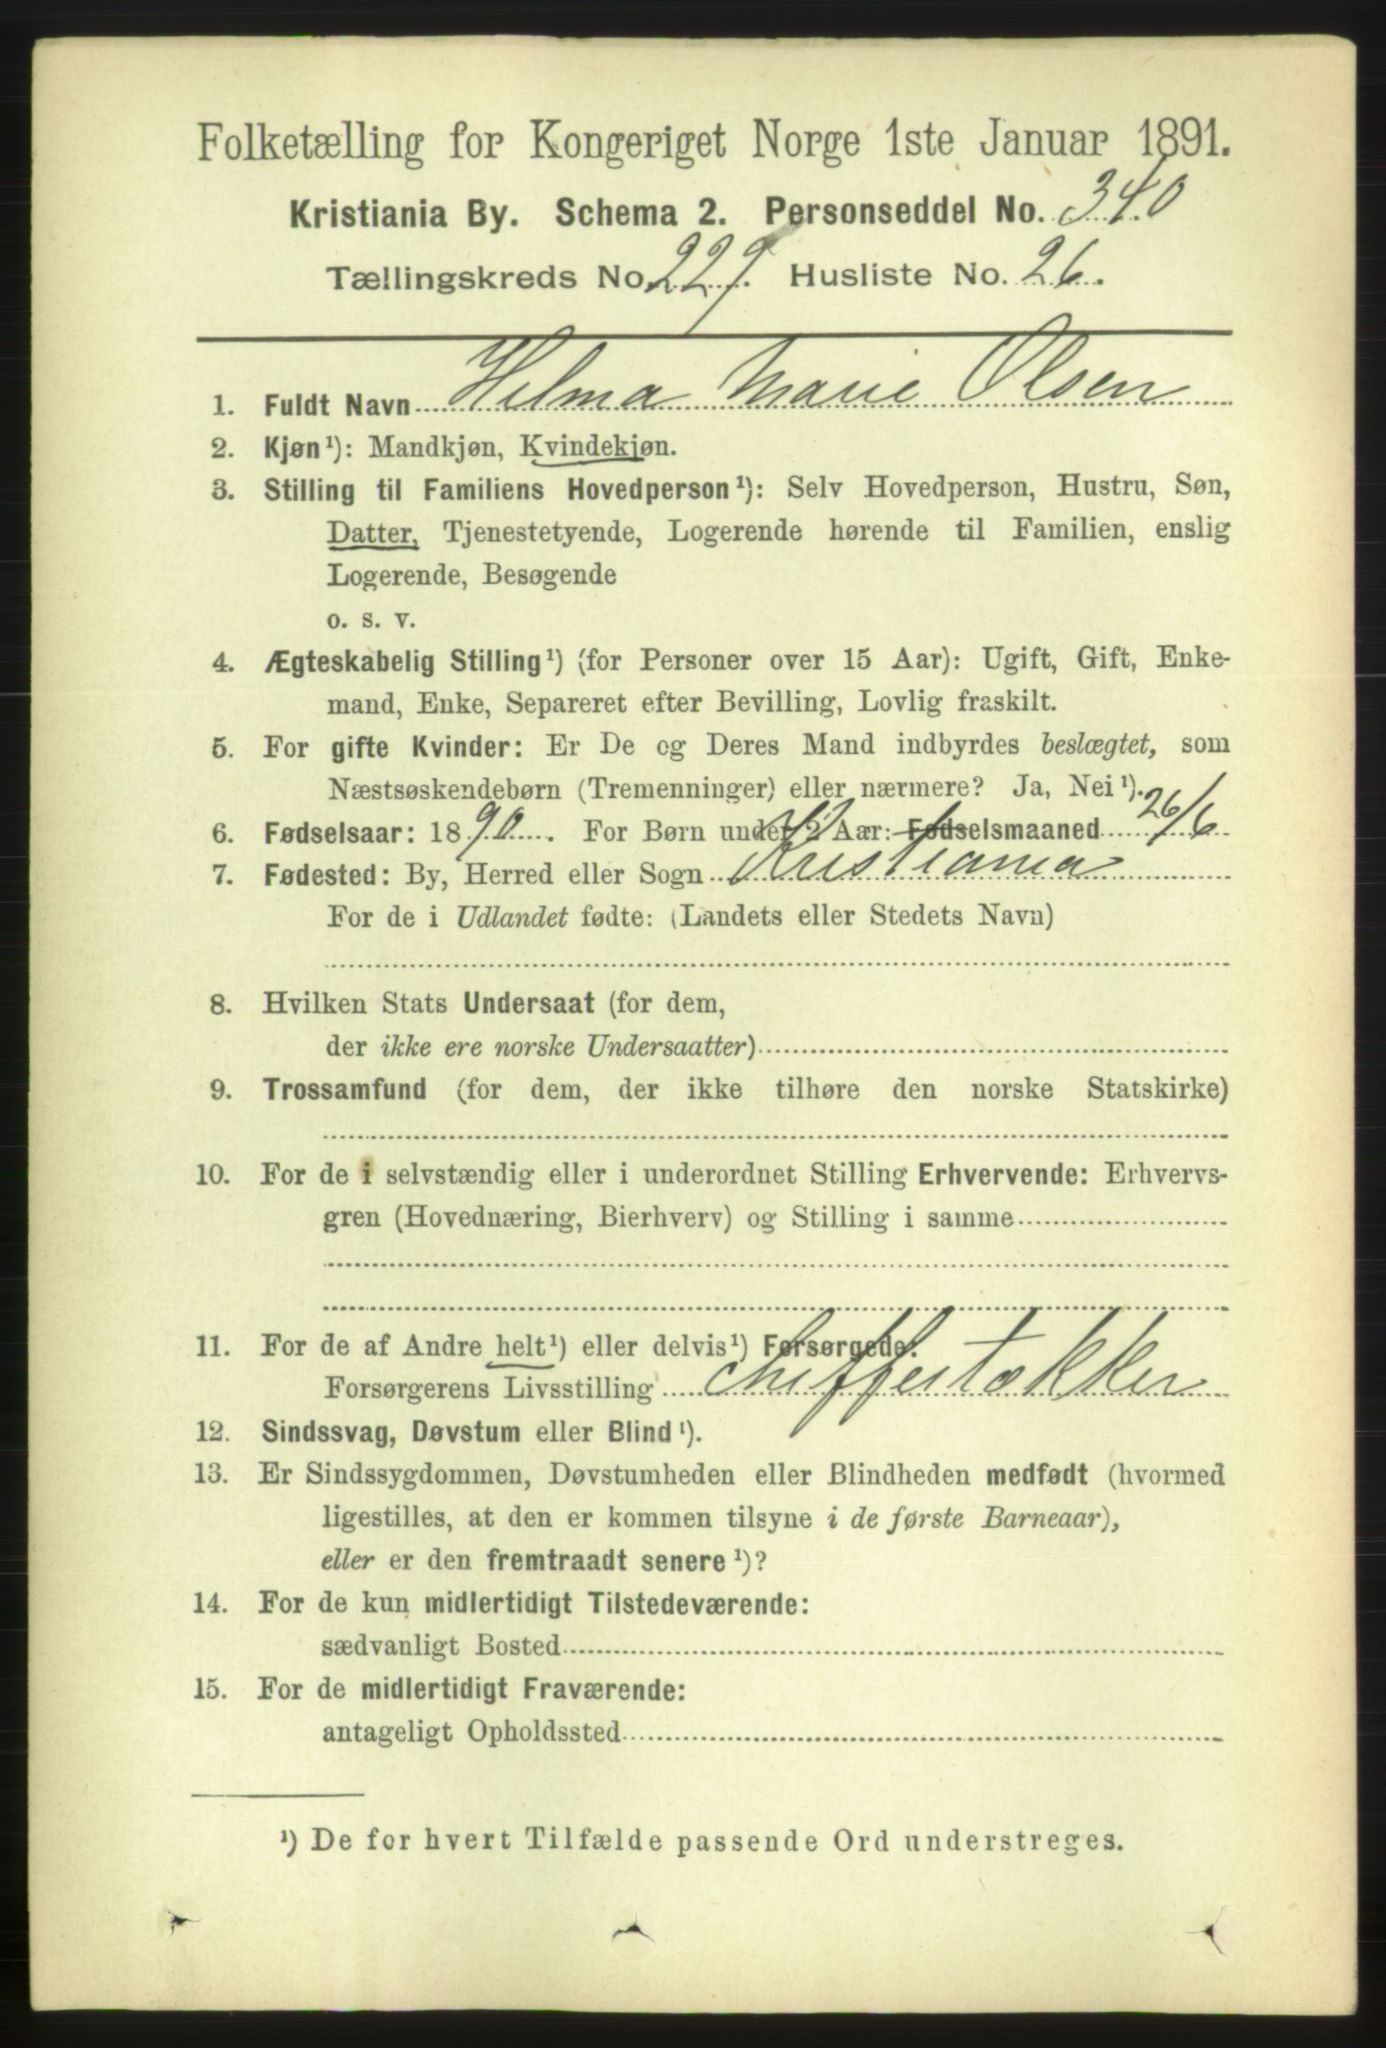 Folketælling for Kongeriget Norge 1ste Januar 1891.
Kristiania By. Schema 2. Personseddel No. 340
Tællingskreds No. 229. Husliste No. 26.
1. Fuldt Navn Helma Marie Olsen
2. Kjøn¹): Mandkjøn, Kvindekjøn.
3. Stilling til Familiens Hovedperson¹): Selv Hovedperson, Hustru, Søn,
Datter, Tjenestetyende, Logerende hørende til Familien, enslig
Logerende, Besøgende
o. s. v.
4. Ægteskabelig Stilling¹) (for Personer over 15 Aar): Ugift, Gift, Enke-
mand, Enke, Separeret efter Bevilling, Lovlig fraskilt.
5. For gifte Kvinder: Er De og Deres Mand indbyrdes beslægtet, som
Næstsøskendebørn (Tremenninger) eller nærmere? Ja, Nei¹).
6. Fødselsaar: 1890. For Børn under 2 Aar: Fødselsmaaned 26/6
7. Fødested: By, Herred eller Sogn Kristiania
For de i Udlandet fødte: (Landets eller Stedets Navn)
8. Hvilken Stats Undersaat (for dem,
der ikke ere norske Undersaatter)
9. Trossamfund (for dem, der ikke tilhøre den norske Statskirke)
10. For de i selvstændig eller i underordnet Stilling Erhvervende: Erhvervs-
gren (Hovednæring, Bierhverv) og Stilling i samme
11. For de af Andre helt¹) eller delvis¹) Forsørgede:
Forsørgerens Livsstilling
12. Sindssvag, Døvstum eller Blind¹).
13. Er Sindssygdommen, Døvstumheden eller Blindheden medfødt (hvormed
ligestilles, at den er kommen tilsyne i de første Barneaar),
eller er den fremtraadt senere¹)?
14. For de kun midlertidigt Tilstedeværende:
sædvanligt Bosted
15. For de midlertidigt Fraværende:
antageligt Opholdssted
¹) De for hvert Tilfælde passende Ord understreges.